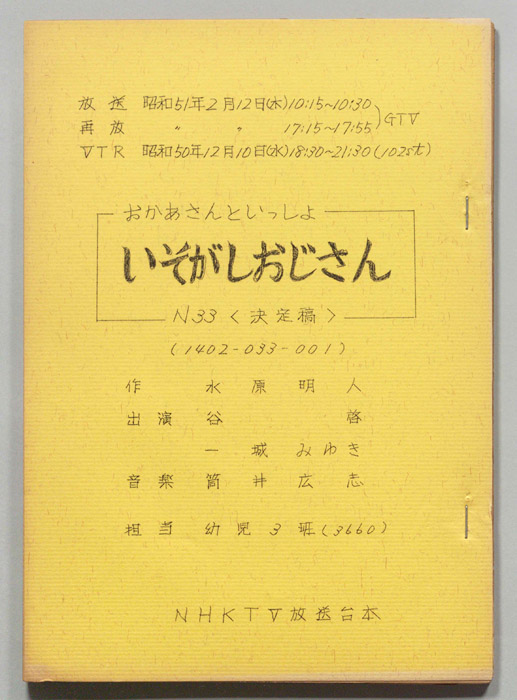 放送 昭和51年2月12日(木)10:15~10:30
再放 〃 〃 17:15~17:55 GTV
VTR 昭和50年12月10日(水)18:30~21:30(102St)
おかあさんといっしょ
いそがしおじさん
N33〈決定稿〉
(1402-033-001)
作 水原明人
出演 谷 啓
一城みゆき
音楽 筒井広志
担当 幼児3班(3660)
NHKTV放送台本